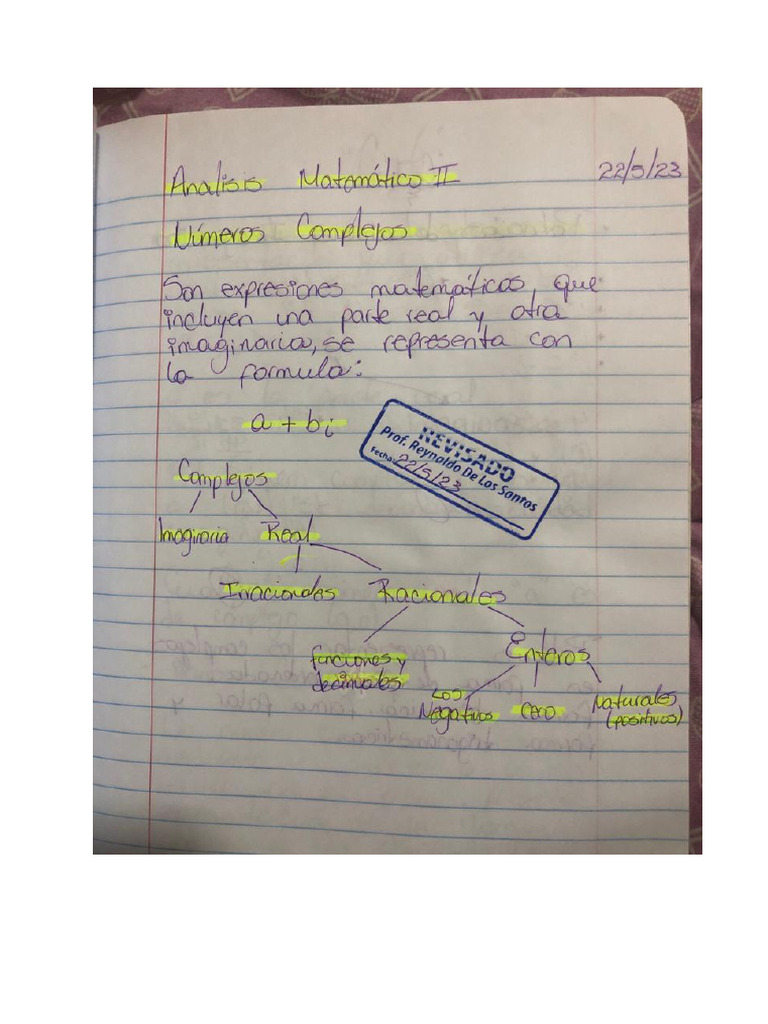 Analisis Matemático II 22/5/23
Números Complejos
Son expresiones matemáticas, que
incluyen una parte real y otra
imaginaria, se representa con
la formula:
a + bi
REVISADO
Prof. Reynaldo De Los Santos
Fecha: 22/5/23
Complejos
Imaginaria Real
Irracionales Racionales
funciones y
decimales
Enteros
Los
Negativos cero Naturales
(positivos)